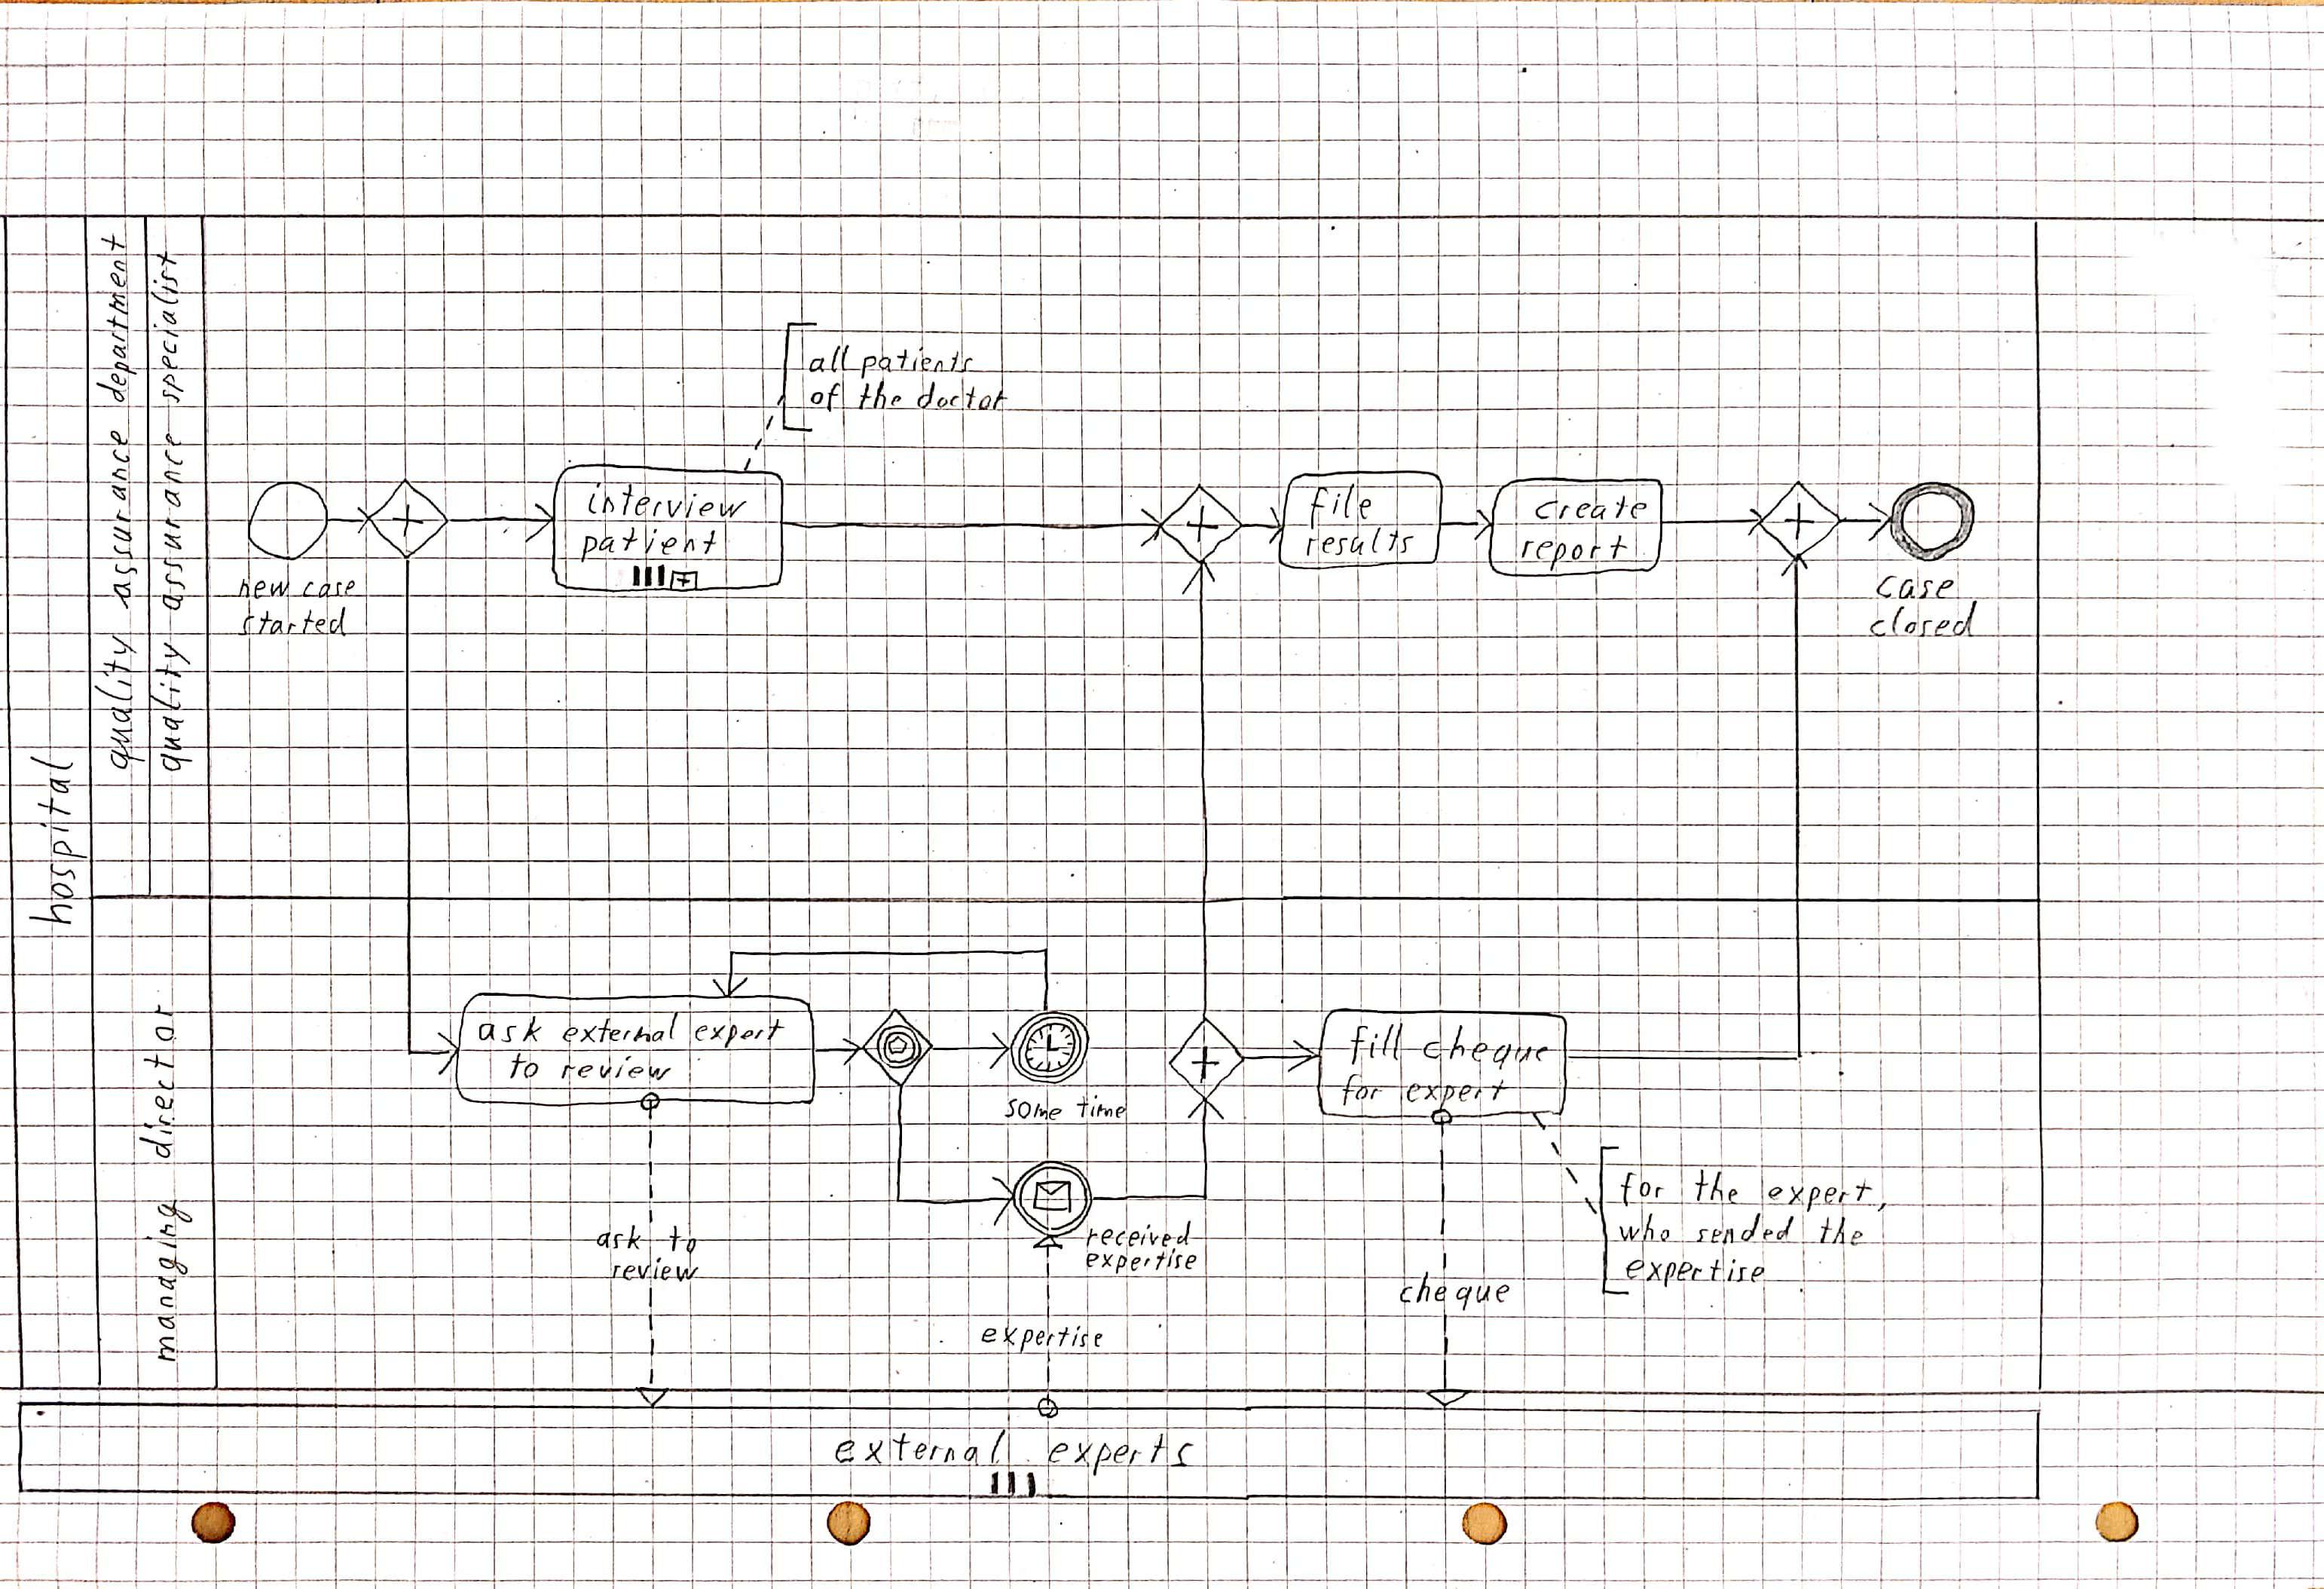 hospital
quality assurance department
quality assurance specialist
managing director
all patients
of the doctor
new case
started
interview
patient
file
results
create
report
case
closed
ask external expert
to review
some time
received
expertise
fill cheque
for expert
for the expert,
who sended the
expertise
ask to
review
expertise
cheque
external experts